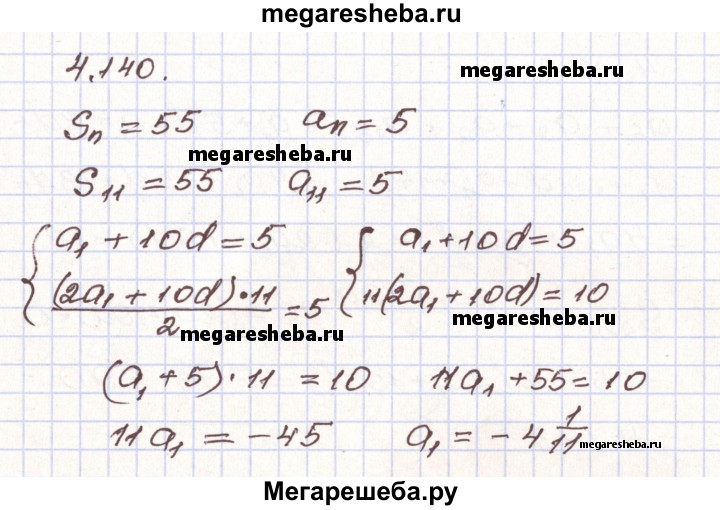 megaresheba.ru
4.140.
megaresheba.ru
Sn = 55   an = 5
megaresheba.ru
S11 = 55   a11 = 5
{ a1 + 10d = 5   { a1 + 10d = 5
(2a1 + 10d)·11 / 2 = 5   11(2a1 + 10d) = 10
megaresheba.ru   megaresheba.ru
(a1 + 5)·11 = 10   11a1 + 55 = 10
11a1 = -45   a1 = -4 1/11
megaresheba.ru
Мегарешеба.ру